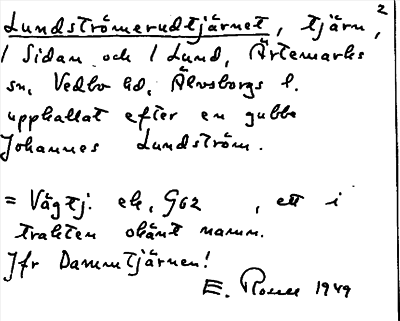 Lundströmerudtjärnet, tjärn, 2
1 Sidan och 1 Lund, Ärtemarks
sn, Vedbo hd, Älvsborgs l.
uppkallat efter en gubbe
Johannes Lundström.
= Vägtj. ek, G62 , ett i
trakten okänt namn.
Jfr Dammtjärnen!
E. 1949